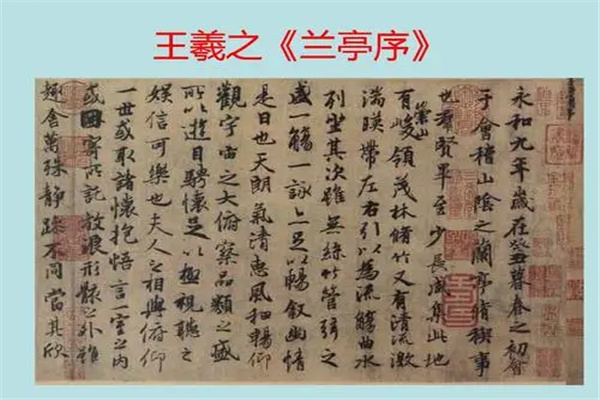 王羲之《兰亭序》
永和九年歲在癸丑暮春之初會
于會稽山陰之蘭亭脩稧事
也羣賢畢至少長咸集此地
有崇山峻領茂林脩竹又有清流激
湍暎帶左右引以為流觴曲水
列坐其次雖無絲竹管弦之
盛一觴一詠亦足以暢敘幽情
是日也天朗氣清惠風和暢仰
觀宇宙之大俯察品類之盛
所以遊目騁懷足以極視聽之
娛信可樂也夫人之相與俯仰
一世或取諸懷抱悟言一室之內
或因寄所託放浪形骸之外雖
趣舍萬殊靜躁不同當其欣